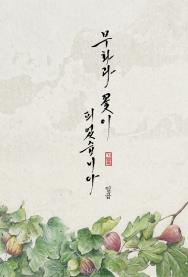 무화과 꽃이
피었습니다